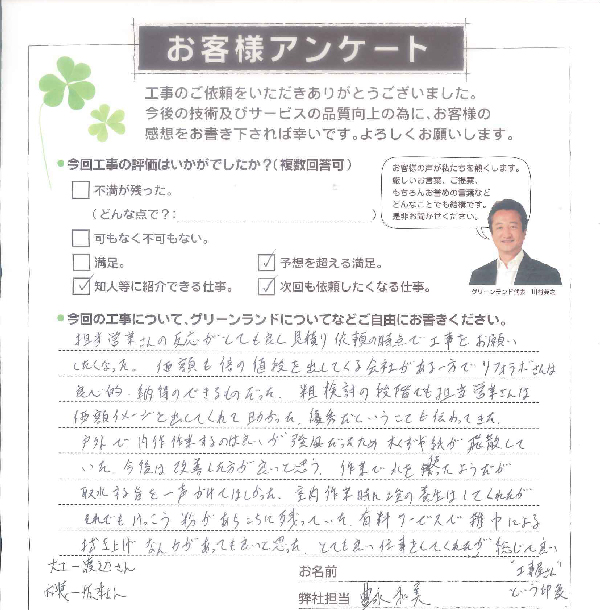 お客様アンケート
工事のご依頼をいただきありがとうございました。
今後の技術及びサービスの品質向上の為に、お客様の
感想をお書き下されば幸いです。よろしくお願いします。
今回工事の評価はいかがでしたか?(複数回答可)
不満が残った。
(どんな点で?: )
可もなく不可もない。
満足。
予想を超える満足。
知人等に紹介できる仕事。
次回も依頼したくなる仕事。
お客様の声が私たちを動くします。
厳しいお言葉、ご提案、
もちろんお誉めの言葉など
どんなことでも結構です。
是非お聞かせください。
グリーンランド代表
今回の工事について、グリーンランドについてなどご自由にお書きください。
担当営業さんの反応がとても良し見積り依頼の時点で工事をお願い
したくなった。価額も倍の値段を出してくる会社がある一方で
良心的、納得のできるものだった。粗検討の段階でも担当営業さんは
価額イメージを出してくれて助かった。優秀だということも伝わってきた。
戸外で内作作業するのは良いが強風だったため木くずや紙が飛散して
いた。今後は改善した方が良いと思う。作業で
取れする旨を一声かけてほしかった。室内作業時に一定の養生はしてくれたが
それでもけっこう粉があちこちに残っていた。有料サービスで
持ち上げなんかがあっても良いと思った。とても良い仕事をしてくれたが 総じて良い
大工
さん
お名前
弊社担当
"工事屋さん"
という印象